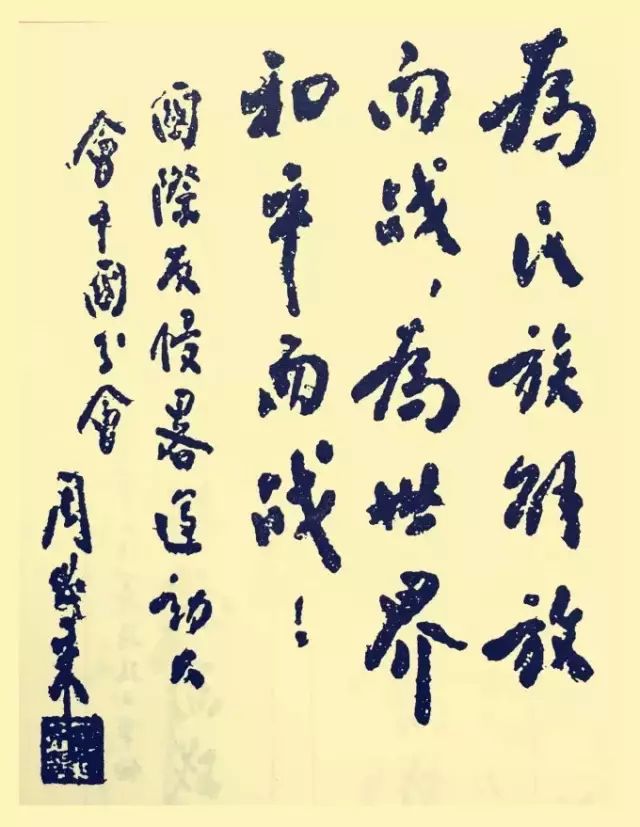 為民族解放
而战，為世界
和平而战！
國際反侵畧運動大
會中國分會
周恩来